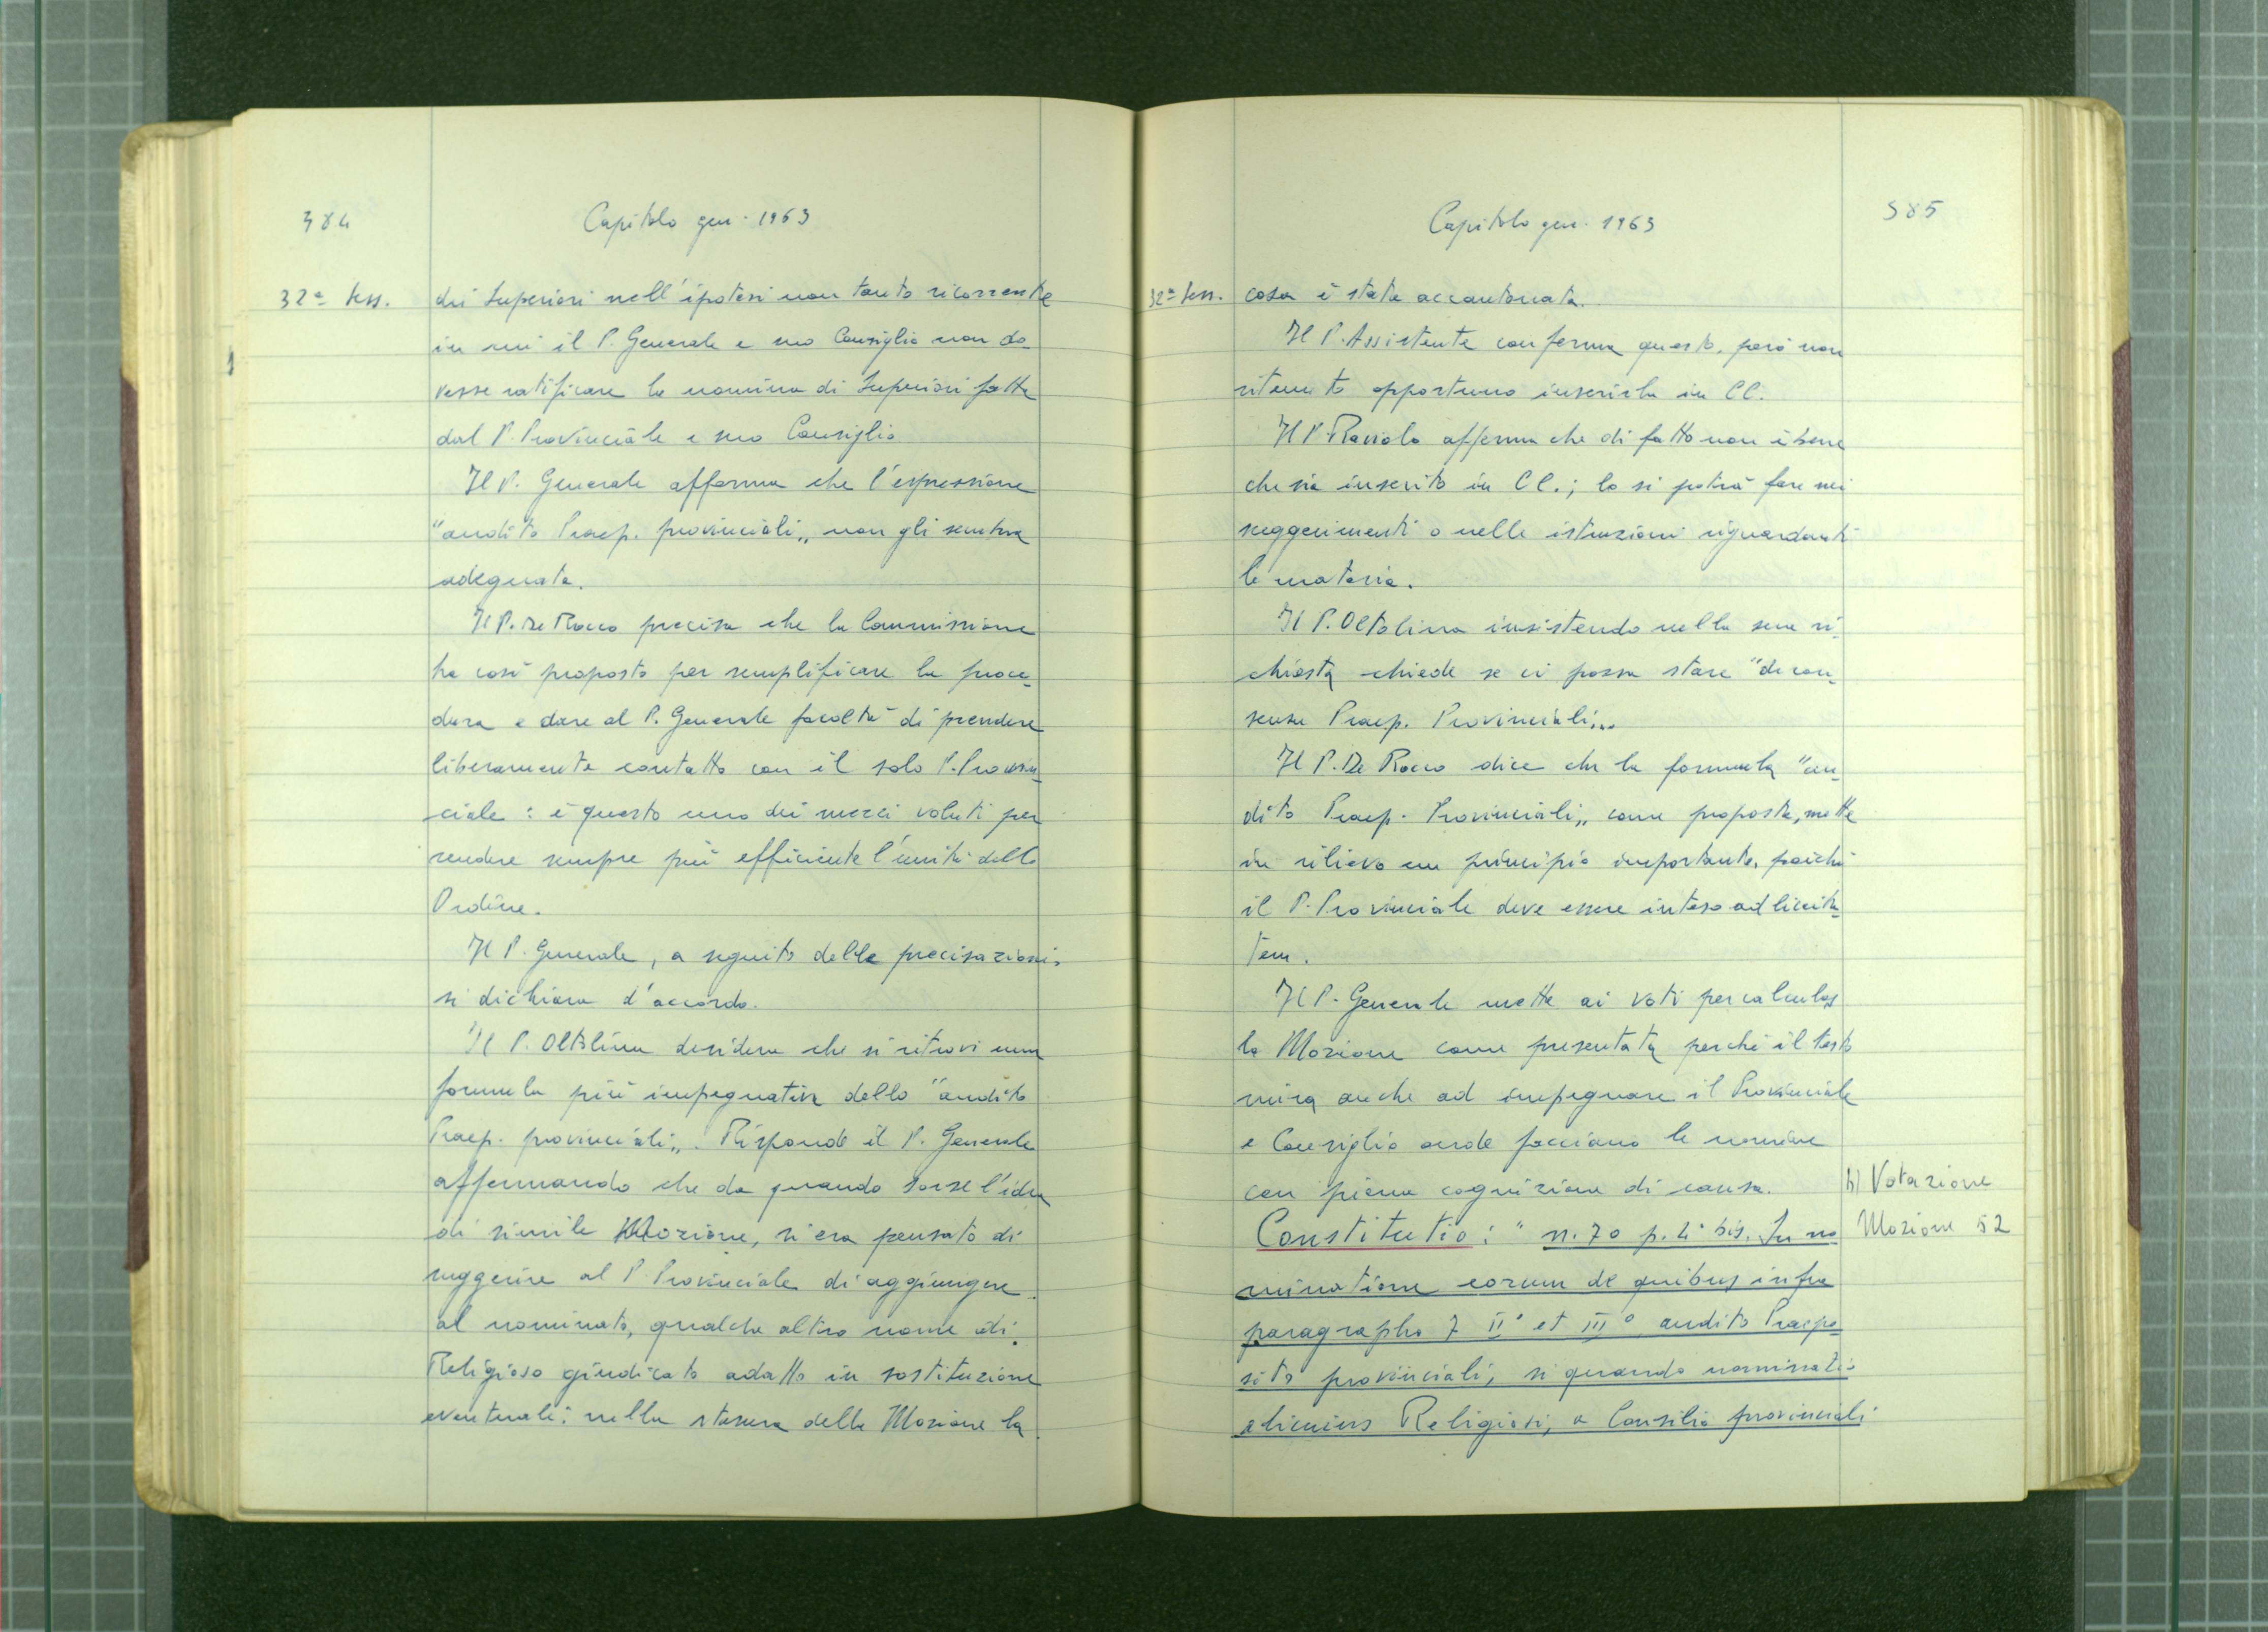 384
Capitolo gen. 1963
32ª Sess.
dei Superiori nell'ipotesi non tanto ricorrente
in cui il P. Generale e suo Consiglio non do_
vesse ratificare la nomina di Superiori fatta
dal P. Provinciale e suo Consiglio
Il P. Generale afferma che l'espressione
"audito Praep. provinciali„ non gli sembra
adeguata.
Il P. De Rocco precisa che la Commissione
ha così proposto per semplificare la proce_
dura e dare al P. Generale facoltà di prendere
liberamente contatto con il solo P. Provin_
ciale : è questo uno dei mezzi voluti per
rendere sempre più efficiente l'unità dello
Ordine.
Il P. Generale, a seguito delle precisazioni,
si dichiara d'accordo.
Il P. Oltolina desidera che si ritrovi una
formula più impegnativa dello "audito
Praep. provinciali„. Risponde il P. Generale
affermando che da quando sorse l'idea
di simile Mozione, si era pensato di
suggerire al P. Provinciale di aggiungere
al nominato, qualche altro nome di
Religioso giudicato adatto in sostituzione
eventuale; nella stesura della Mozione la
Capitolo gen. 1963
385
32ª Sess.
cosa è stata accantonata.
Il P. Assistente conferma questo, però non
ritenuto opportuno inserirla in CC.
Il P. Raviolo afferma che di fatto non è bene
che sia inserito in CC.; lo si potrà fare nei
suggerimenti o nelle istruzioni riguardanti
la materia.
Il P. Oltolina insistendo nella sua ri_
chiesta chiede se ci possa stare "de con_
sensu Praep. Provinciali„.
Il P. De Rocco dice che la formula "au_
dito Praep. Provinciali„ come proposta, mette
in rilievo un principio importante, poichè
il P. Provinciale deve essere inteso ad liceita_
tem.
Il P. Generale mette ai voti per calculos
la Mozione come presentata perchè il testo
mira anche ad impegnare il Provinciale
e Consiglio onde facciano le nomine
con piena cognizione di causa.
b) Votazione
Mozione 52
Constitutio : " n. 70 p. 4° bis. In no
minatione eorum de quibus infra
paragrapho 7 II° et III° audito Praepo_
sito provinciali, si quando nominatio
alicuius Religiosi, a Consilio provinciali